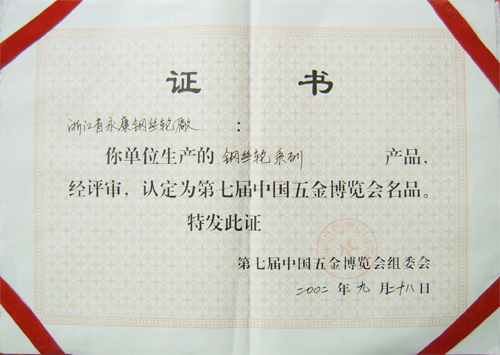 证 书
浙江省永康钢丝轮廠 :
你单位生产的 钢丝轮系列 产品,
经评审,认定为第七届中国五金博览会名品。
特发此证
第七届中国五金博览会组委会
二00二 年 九 月 二十八 日